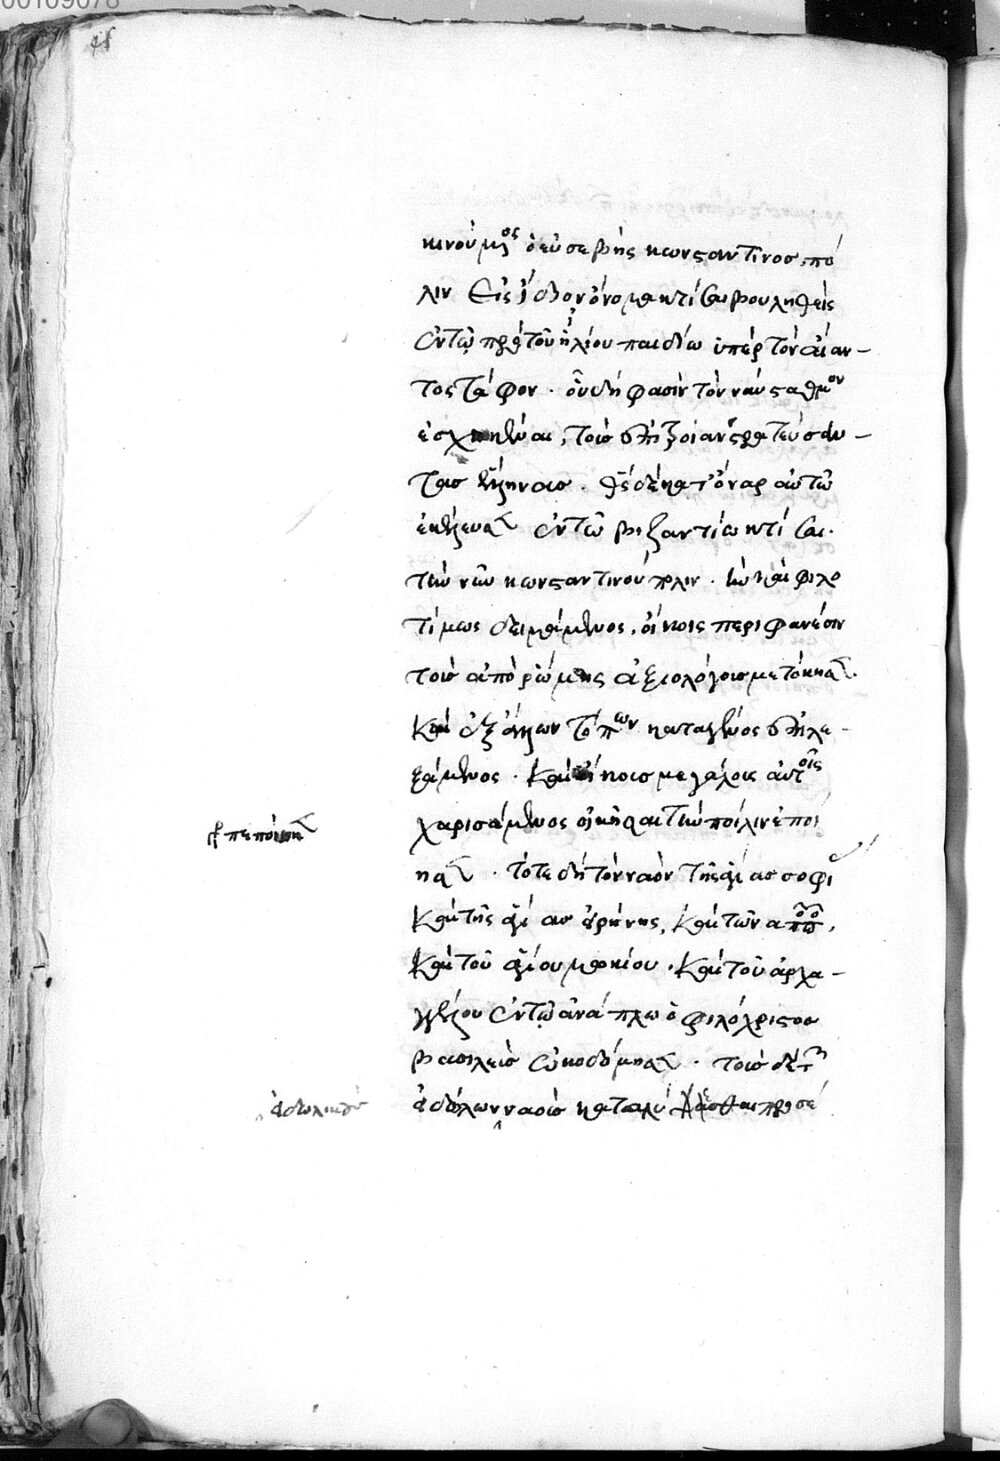 κινούμενος ὁ εὐσεβὴς κωνσταντῖνος, πό
λιν εἰς ἴδιον ὄνομα κτίσαι βουληθεὶς
ἐν τῷ πρὸ τοῦ ἡλίου πεδίω ὑπὲρ τὸν αἴαν-
τος τάφον. οὗ δή φασὶν τὸν ναύσταθμον
ἐσχηκέναι, τοὺς ἐπ' ἴλιον στρατεύσαν-
τας ἕλληνας. θεὸς δὲ κατ' ὄναρ αὐτῶ
ἐκέλευσεν ἐν τῶ βυζαντίω κτίσαι
τὴν νῦν κωνσταντινούπολιν. ἣν καὶ φιλο
τίμως δειμάμενος, οἴκοις περιφανέσιν
τοὺς ἀπὸ ῥώμης ἀξιολόγους μετώκησεν
καὶ ἐξ ἄλλων τόπων κατὰ γένος ἐπιλε-
ξάμενος. καὶ οἴκους μεγάλους αὐτοῖς
χαρισάμενος οἰκῆσαι τὴν πόλιν ἐποί
ησεν. τότε δὴ τὸν ναὸν τῆς ἁγίας σοφί
καὶ τῆς ἁγίας εἰρήνης, καὶ τῶν ἀποστόλων,
καὶ τοῦ ἁγίου μωκίου. καὶ τοῦ ἀρχα-
γγέλου ἐν τῶ ἀνάπλω ὁ φιλόχριστος
βασιλεὺς ὠκοδόμησεν. τοὺς δὲ τῶν
εἰδώλων ναοὺς καταλύεσθαι προσέ
πεποίηκεν
εἰδωλικοὺς